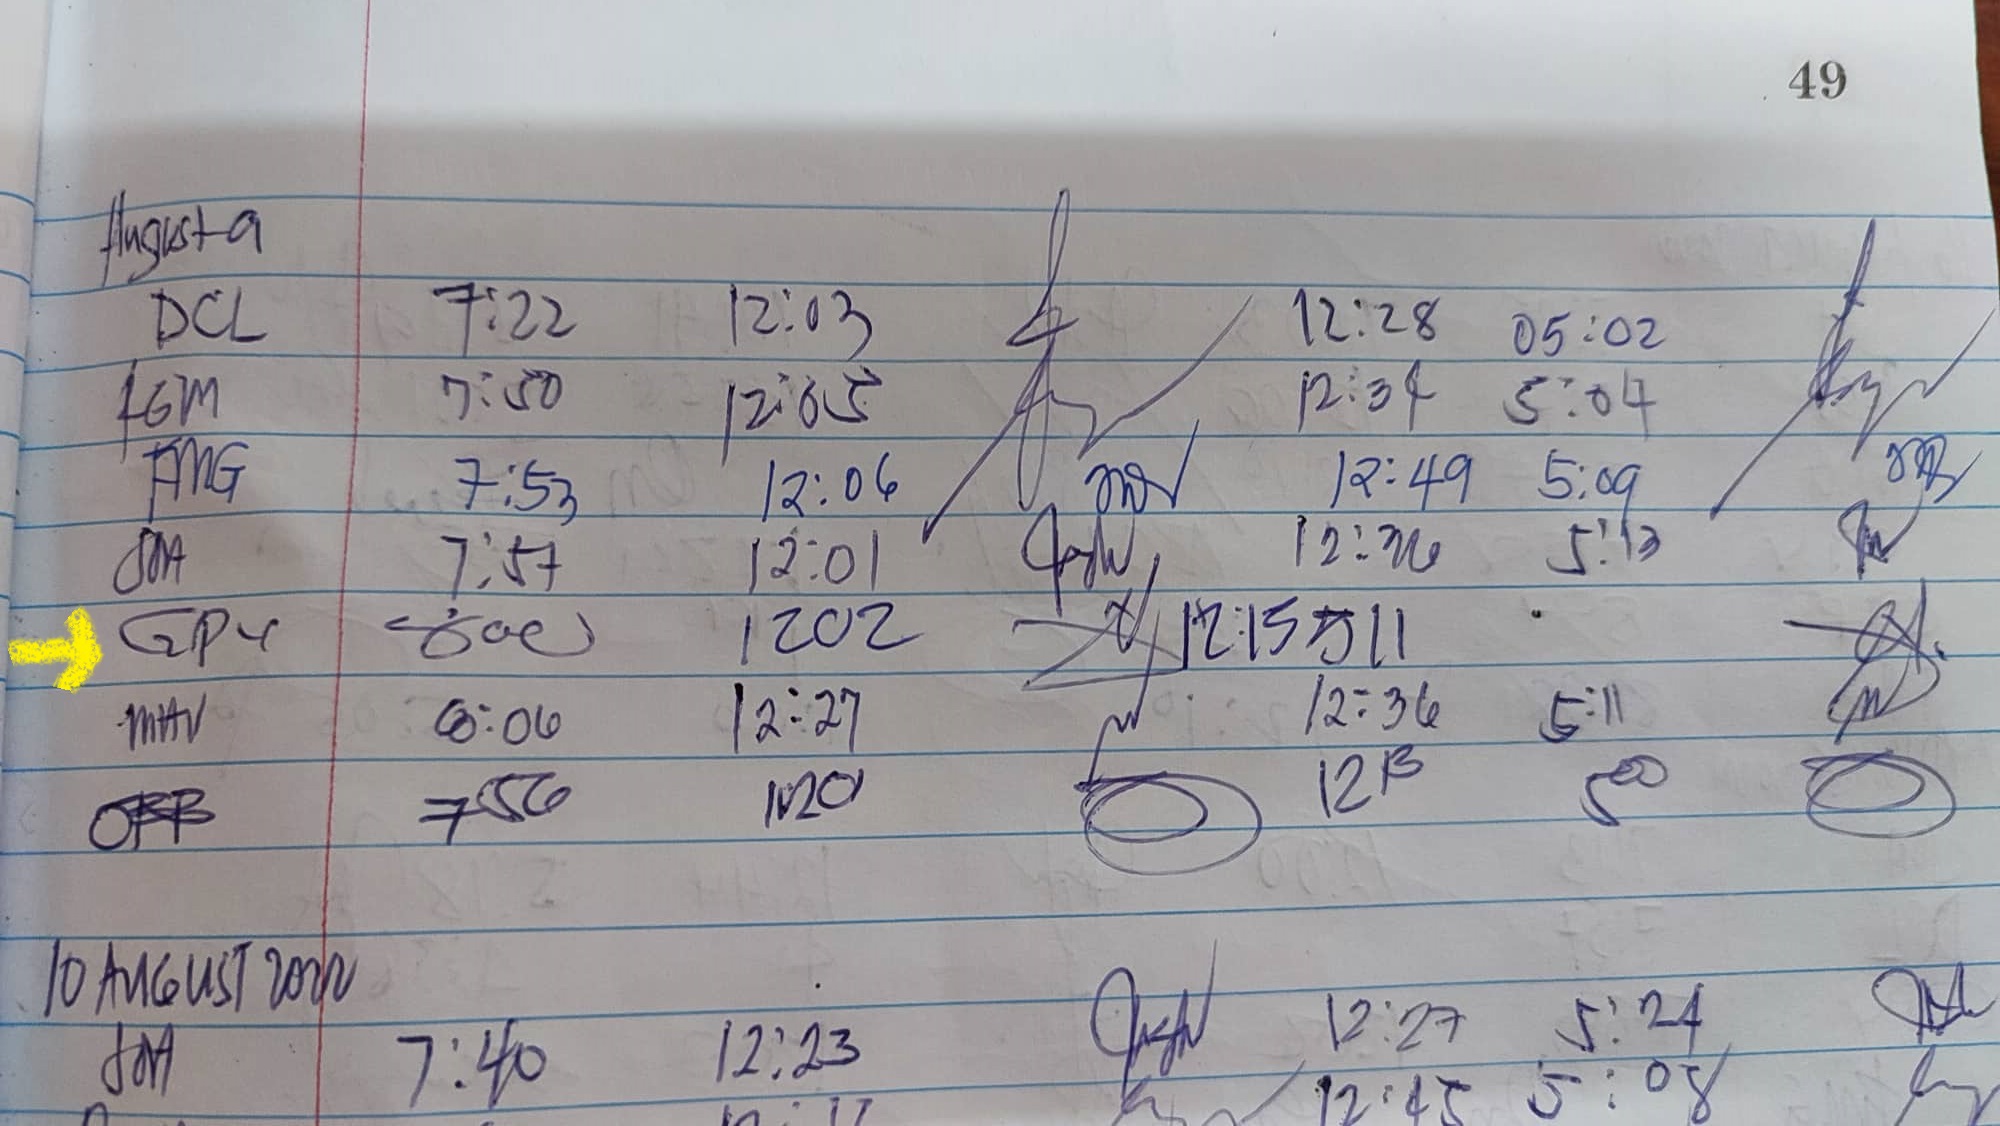 49
August 9
DCL 7:22 12:03 12:28 05:02
FGM 7:50 12:05 12:34 5:04
FMG 7:53 12:06 12:49 5:09
JNA 7:57 12:01 12:36 5:13
800 1202 12:15 511
MAV 8:06 12:27 12:36 5:11
756 1213 500
10 AUGUST 2022
JNA 7:40 12:23 12:27 5:24
12:45 5:08